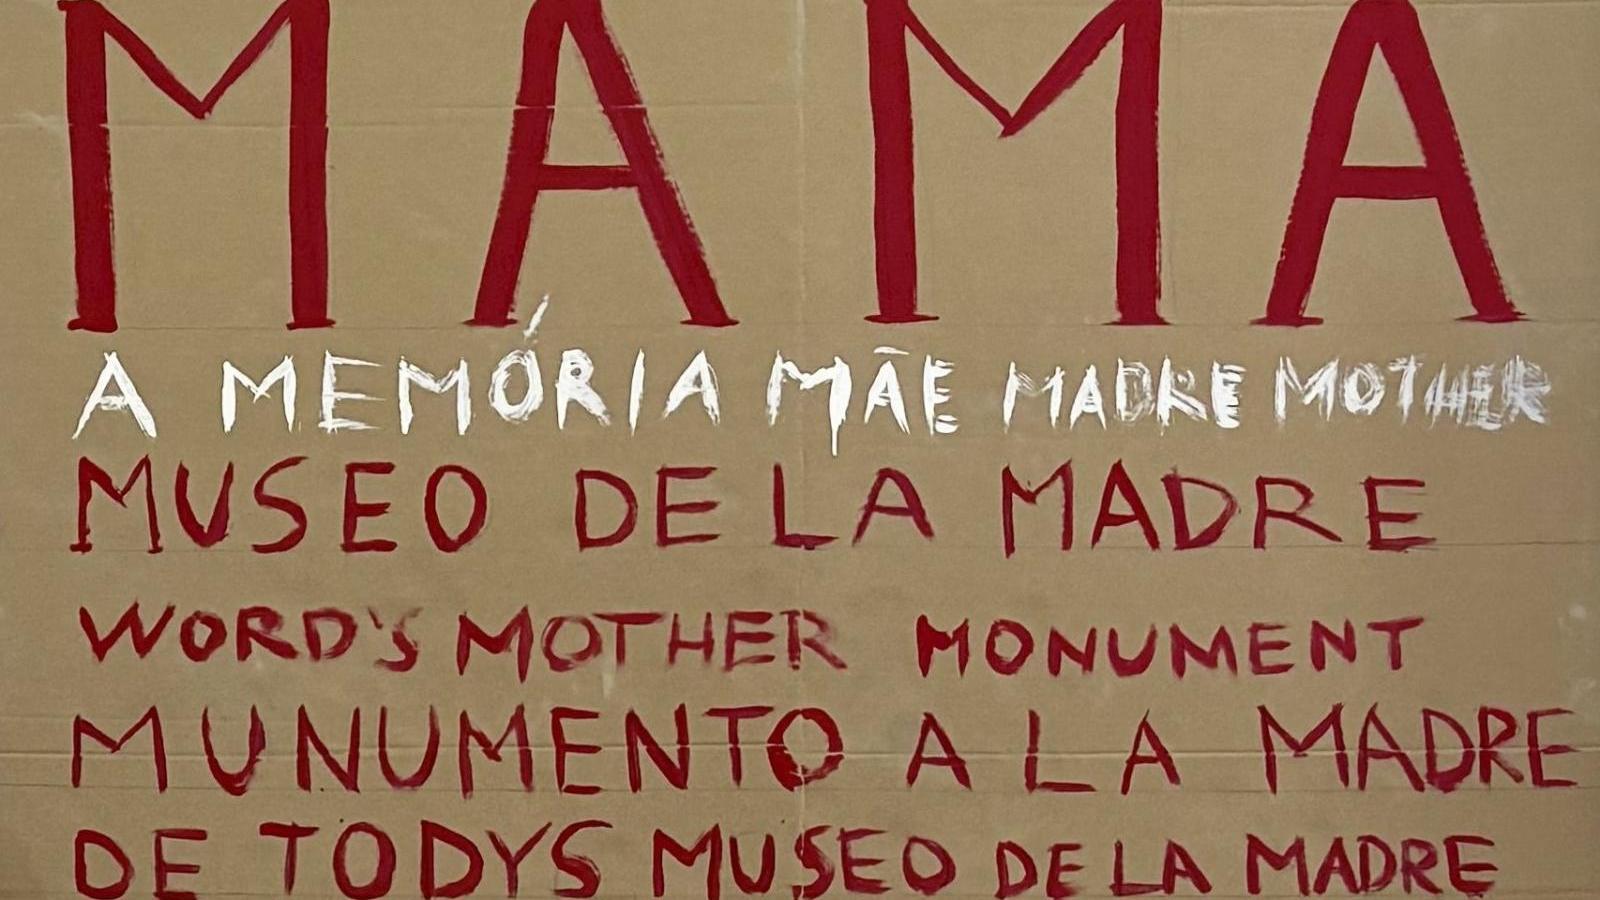 MAMA
A MEMÓRIA MÃE MADRE MOTHER
MUSEO DE LA MADRE
WORD'S MOTHER MONUMENT
MUNUMENTO A LA MADRE
DE TODYS MUSEO DE LA MADRE